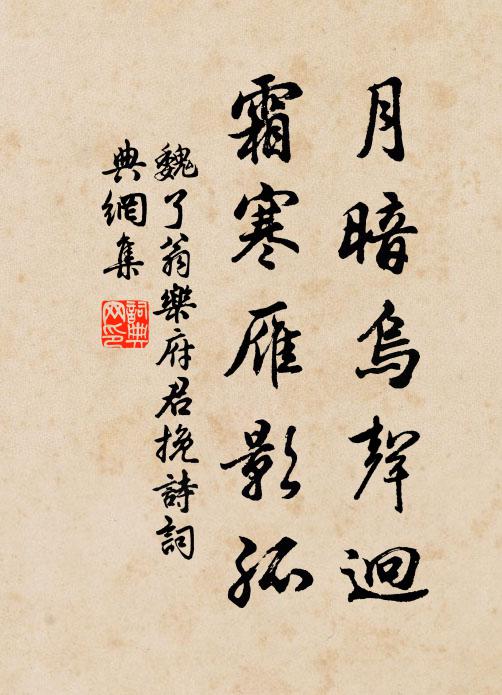 月暗烏聲迥
霜寒雁影孤
魏了翁樂府君挽詩詞
典網集
詞典
网印